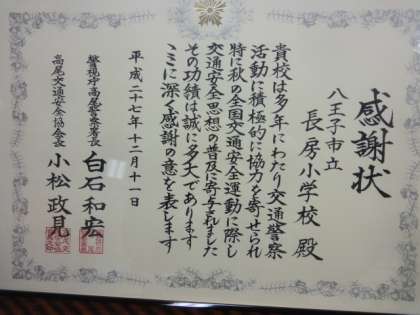 感謝状
八王子市立
長房小学校 殿
貴校は多年にわたり交通警察
活動に積極的に協力を寄せられ
特に秋の全国交通安全運動に際し
交通安全思想の普及に寄与されました
その功績は誠に多大であります
ここに深く感謝の意を表します
平成二十七年十二月十一日
警視庁高尾警察署長 白石和宏
高尾交通安全協会長 小松政見